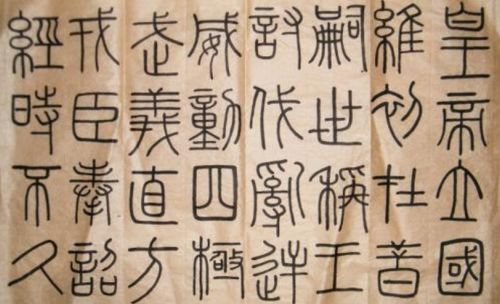 皇帝立國
維初在昔
嗣世稱王
討伐亂逆
威動四極
武義直方
戎臣奉詔
經時不久